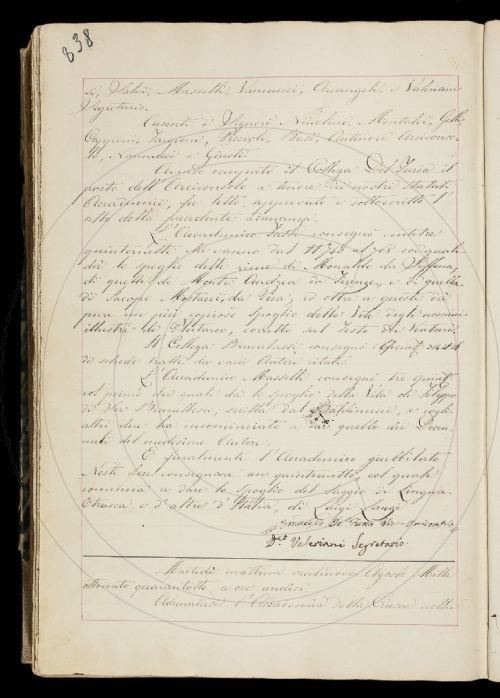 838
si, Salvi, Masselli, Vannucci, Arcangeli, e Valeriani
Segretario.
Assenti i Signori Niccolini, Montalvi,
Capponi, Targioni, Puccioti, Busi, Antinori Arciconso-
lo, Nannucci e
Avendo occupato il Collega Del Furia il
posto dell'Arciconsolo a tenore dei nostri Statuti
Accademici, fu letto, approvato e sottoscritto l'
atto della precedente adunanza.
L'Accademico consegnò ventitre
quinternetti che vanno dal al coi quali
dà lo spoglio delle rime di Monaldo da Soffena,
di quelle di Monte Andrea da Firenze, e di quelle
di Jacopo Mostacci da Pisa, ed oltre a questi dà
pure un più copioso spoglio delle Vite degli uomini
illustri di Plutarco, condotto sul Testo
Il Collega Brucalassi consegnò i
di schede tratte da varii Autori citati.
L'Accademico Masselli consegnò tre
col primo dei quali dà lo spoglio della Vita di Filippo
di Ser Brunellesco, scritta dal Baldinucci, e cogli
altri due ha incominciato a dar quello dei Decen-
nali del medesimo Autore.
E finalmente l'Accademico giubbilato
Nesti fece consegnare un quinternetto, col quale
comincia a dare lo spoglio del Saggio di Lingua
Etrusca e d'altre d'Italia, di Luigi Lanzi
Francesco Del Furia Vice-Arciconsolo
Valeriani Segretario.
Martedì mattina ventinove Agosto Mille
ottocento quarantotto, a ore undici.
Adunatasi l'Accademia della Crusca nella